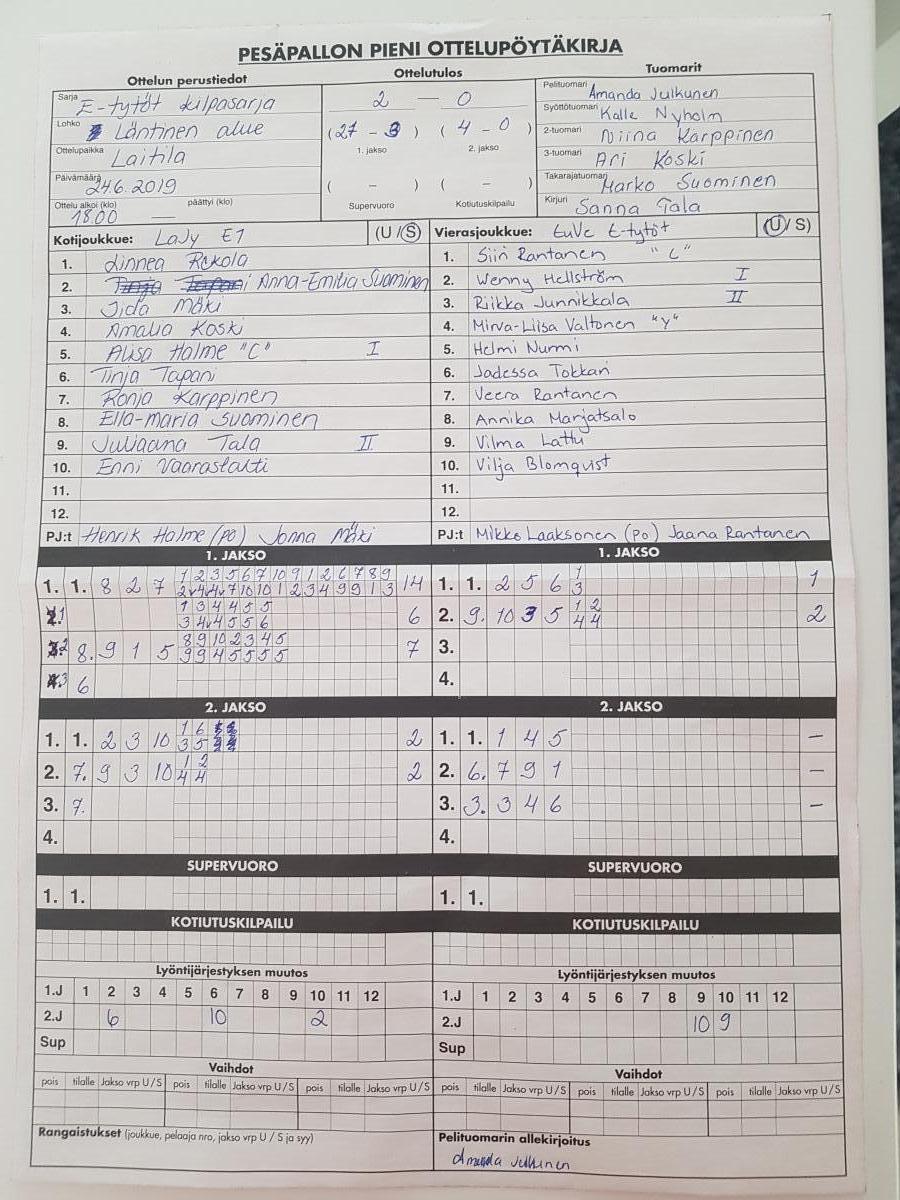 PESÄPALLON PIENI OTTELUPÖYTÄKIRJA
Ottelun perustiedot
Sarja E-tytöt kilpasarja
Lohko Läntinen alue
Ottelupaikka Laitila
Päivämäärä 24.6.2019
Ottelu alkoi (klo) 18.00 — päättyi (klo)
Ottelutulos
2 – 0
(27 – 3) (4 – 0)
1. jakso 2. jakso
( – ) ( – )
Supervuoro Kotiutuskilpailu
Tuomarit
Pelituomari Amanda Julkunen
Syöttötuomari Kalle Nyholm
2-tuomari Niina Karppinen
3-tuomari Ari Koski
Takarajatuomari Marko Suominen
Kirjuri Sanna Tala
Kotijoukkue: LaJy E1 (U / S)
1. Linnea Rekola
2. Anna-Emilia Suominen
3. Iida Mäki
4. Amalia Koski
5. Alisa Halme "C" I
6. Tinja Tapani
7. Ronja Karppinen
8. Ella-maria Suominen
9. Juliaana Tala II
10. Enni
11.
12.
PJ:t Henrik Halme (po) Jonna Mäki
Vierasjoukkue: EuVe E-tytöt (U / S)
1. Siiri Rantanen "C"
2. Wenny Hellström I
3. Riikka Junnikkala II
4. Mirva-Liisa Valtonen "Y"
5. Helmi Nurmi
6. Jadessa Tokkari
7. Veera Rantanen
8. Annika Marjatsalo
9. Vilma Lattu
10. Vilja Blomqvist
11.
12.
PJ:t Mikko Laaksonen (po) Jaana Rantanen
1. JAKSO
1. 1. 8 2 7
1 2 3 5 6 7 10 9 1 2 6 7 8 9
14
1 3 4 4 5 5
3 4 4 5 5 6
6
8. 9 1 5
8 9 10 2 3 4 5
9 9 4 5 5 5 5
7
6
1. JAKSO
1. 1. 2 5 6
1
3
1
2. 9. 10 3 5
1 2
4 4
2
3.
4.
2. JAKSO
1. 1. 2 3 10
1 6
3 5
2
2. 7. 9 3 10
1 2
4 4
2
3. 7.
4.
2. JAKSO
1. 1. 1 4 5 –
2. 6. 7 9 1 –
3. 3. 3 4 6 –
4.
SUPERVUORO
1. 1.
SUPERVUORO
1. 1.
KOTIUTUSKILPAILU
KOTIUTUSKILPAILU
Lyöntijärjestyksen muutos
1.J 1 2 3 4 5 6 7 8 9 10 11 12
2.J 6 10 2
Sup
Lyöntijärjestyksen muutos
1.J 1 2 3 4 5 6 7 8 9 10 11 12
2.J 10 9
Sup
Vaihdot
pois tilalle Jakso vrp U / S pois tilalle Jakso vrp U / S pois tilalle Jakso vrp U / S
Vaihdot
pois tilalle Jakso vrp U / S pois tilalle Jakso vrp U / S pois tilalle Jakso vrp U / S
Rangaistukset (joukkue, pelaaja nro, jakso vrp U / S ja syy)
Pelituomarin allekirjoitus
Amanda Julkunen